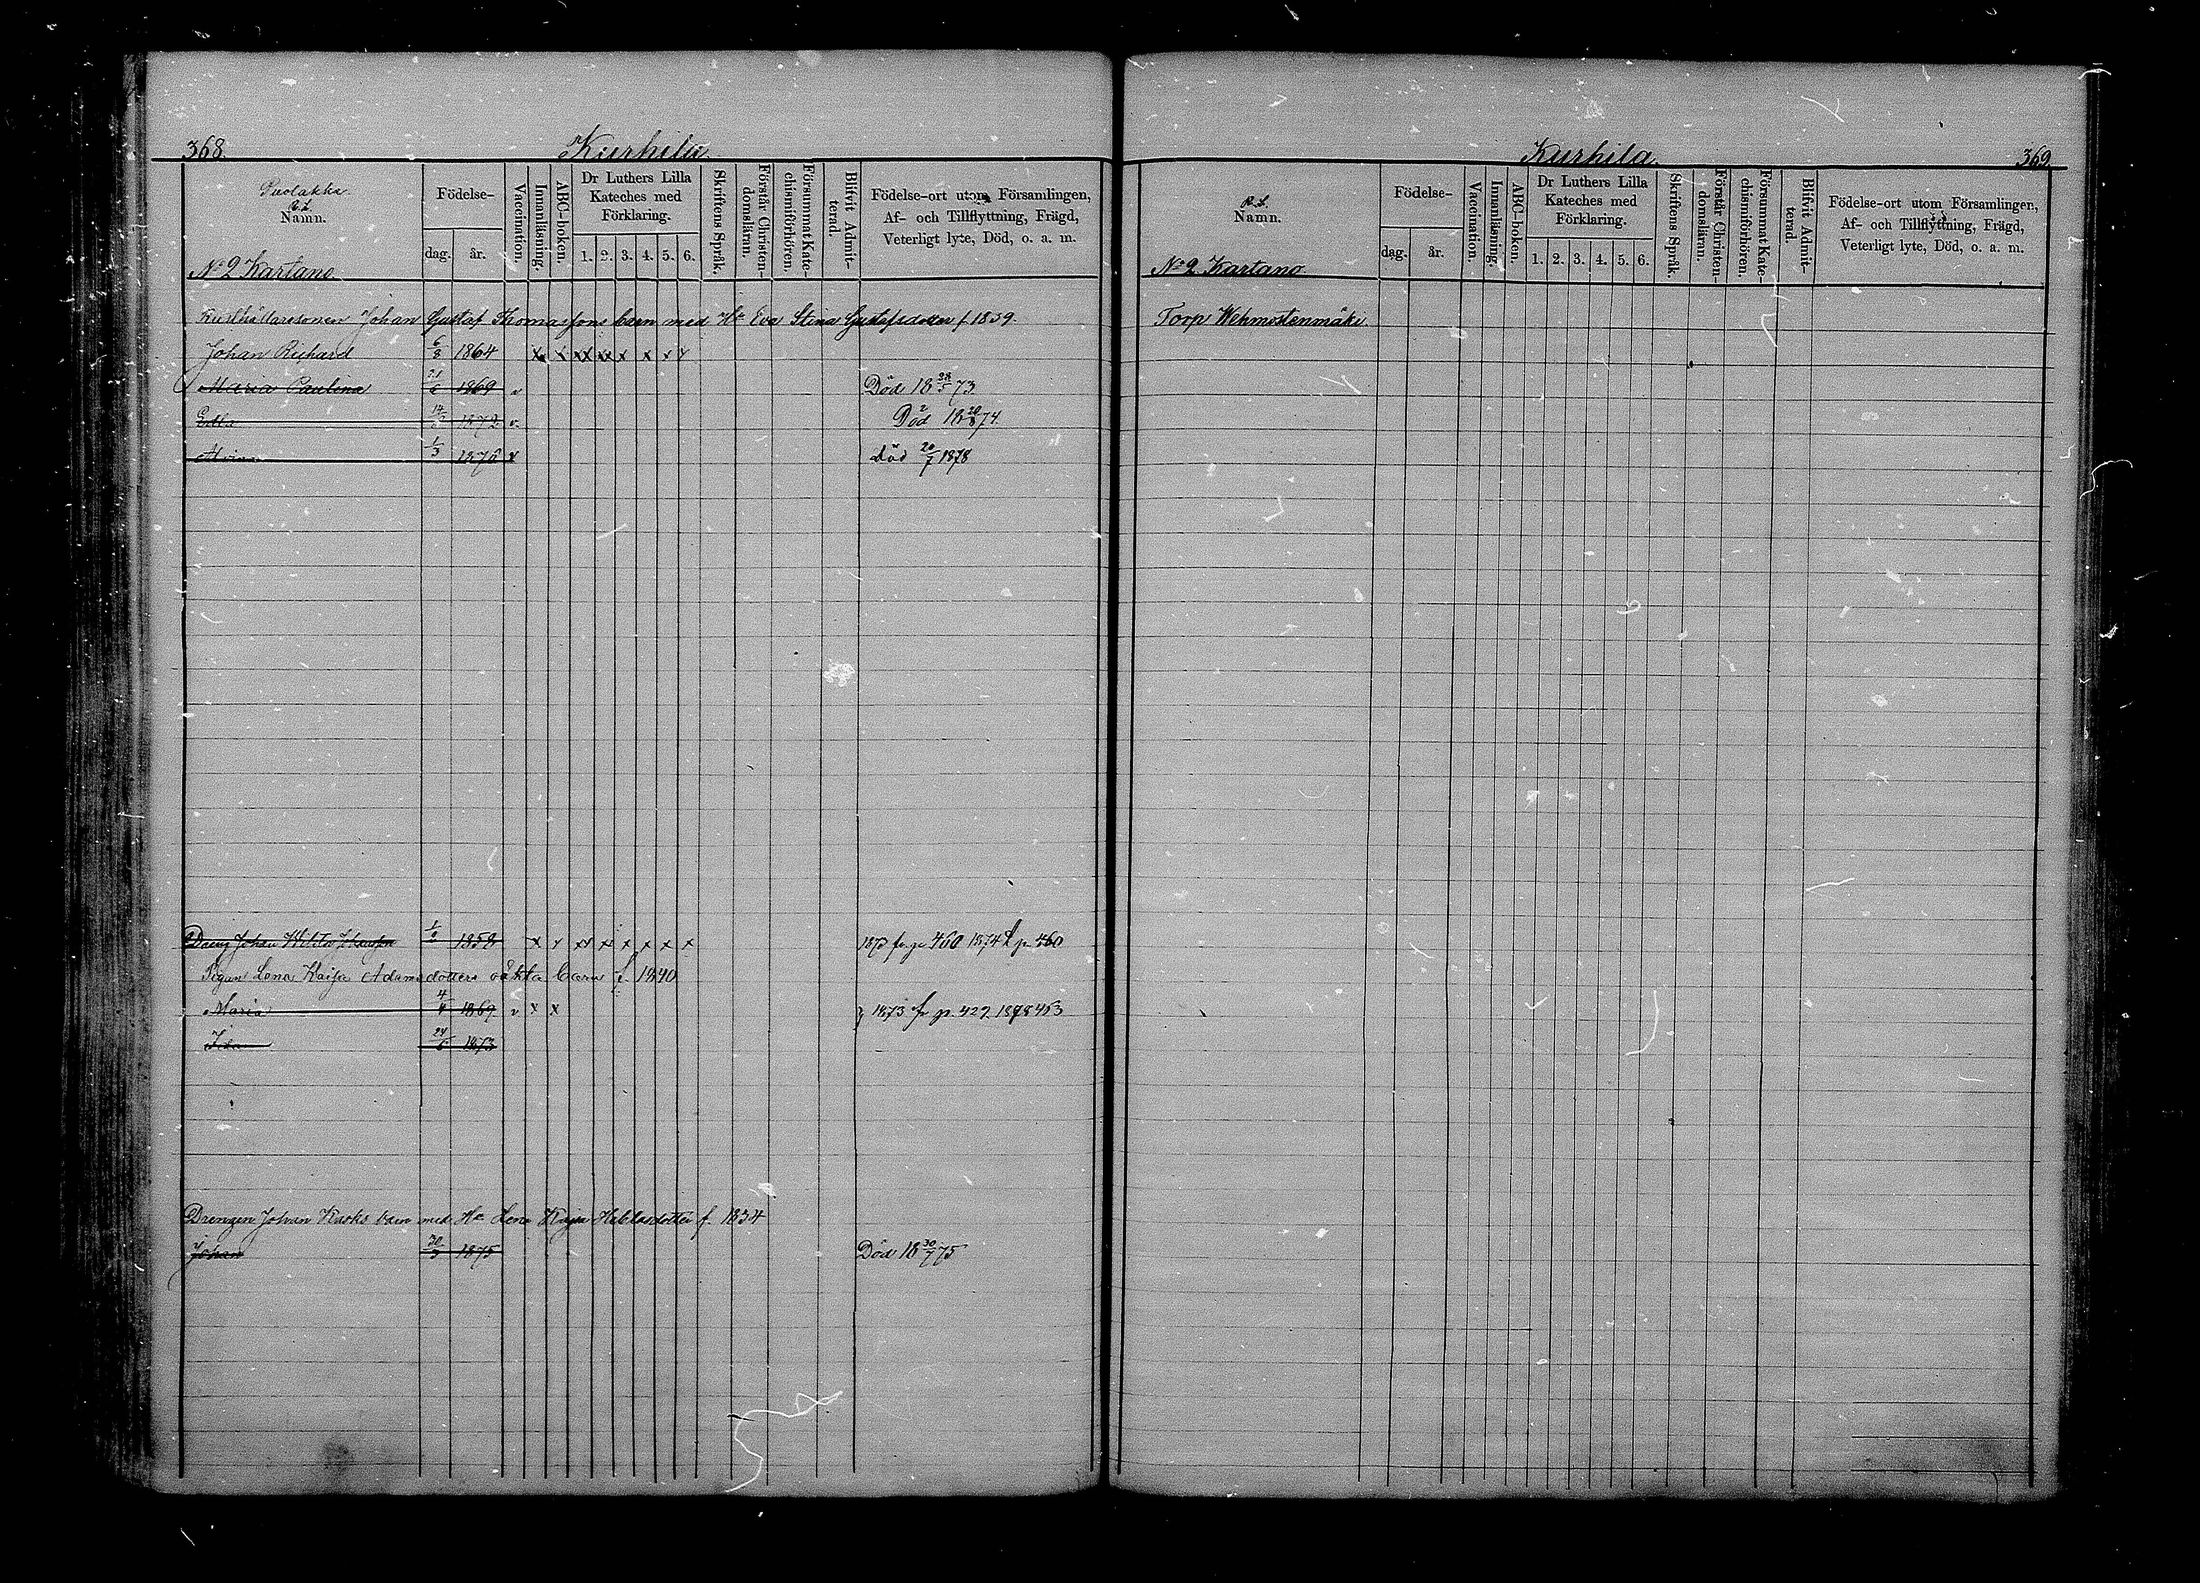 368. Kurhila.
Puolakka
R. L.
Namn.
No 2 Kartano
Födelse-
dag. år.
Vaccination.
Innanläsning.
ABC-boken.
Dr Luthers Lilla
Kateches med
Förklaring.
1. 2. 3. 4. 5. 6.
Skriftens Språk.
Förstår Christen-
domsläran.
Försummat Kate-
chismiförhören.
Blifvit Admit-
terad.
Födelse-ort utom Församlingen,
Af- och Tillflyttning, Frägd,
Veterligt lyte, Död, o. a. m.
Johan Gustaf Thomassons barn med Hu Eva Stina Gustafsdotter f. 1839.
Johan Richard 6/8 1864 x x xx xx x x x x
Maria Paulina 21/6 1869 v Död 18 28/5 73.
Edla 14/ 1872 v. Död 18 20/8 74.
1/3 1876 v död 20/7 1878
Dreng Johan 1/2 1858 x x xx xx x x x x 1873 fr. p 460 1874 t. p. 460
Pigan Lena Kaisa Adamsdotters oäkta barn f. 1840
Maria 4/4 1869 v x x 1873 fr p. 429. 1878 453
Ida 24/5 1873
Drengen Johan Kasks barn med Hu Lena Kajsa f. 1834
Johan 30/3 1875 Död 18 30/7 75
Kurhila. 369.
R. L.
Namn.
No 2 Kartano
Födelse-
dag. år.
Vaccination.
Innanläsning.
ABC-boken.
Dr Luthers Lilla
Kateches med
Förklaring.
1. 2. 3. 4. 5. 6.
Skriftens Språk.
Förstår Christen-
domsläran.
Försummat Kate-
chismiförhören.
Blifvit Admit-
terad.
Födelse-ort utom Församlingen,
Af- och Tillflyttning, Frägd,
Veterligt lyte, Död, o. a. m.
Torp Wehmostenmäki